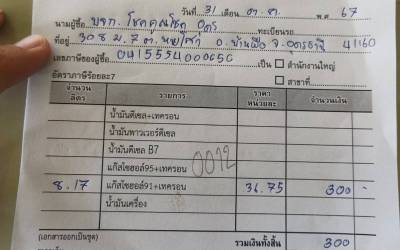 วันที่ 31 เดือน ต.ค. พ.ศ 67
นามผู้ซื้อ บจก. โชคคูณโชค อุดร ทะเบียนรถ
ที่อยู่ 308 ม.7 ต. อ.บ้านผือ จ.อุดรธานี 41160
เลขภาษีของผู้ซื้อ 0415554000656 เป็น สำนักงานใหญ่
อัตราภาษีร้อยละ7 สาขาที่
จำนวนลิตร รายการ ราคาหน่วยละ จำนวนเงิน
น้ำมันดีเซล+เทครอน
น้ำมันพาวเวอร์ดีเซล
น้ำมันดีเซล B7
แก๊สโซฮอล์95+เทครอน 0092
8.17 แก๊สโซฮอล์91+เทครอน 36.75 300 -
น้ำมันเครื่อง
(เอกสารออกเป็นชุด) รวมเงินทั้งสิ้น 300